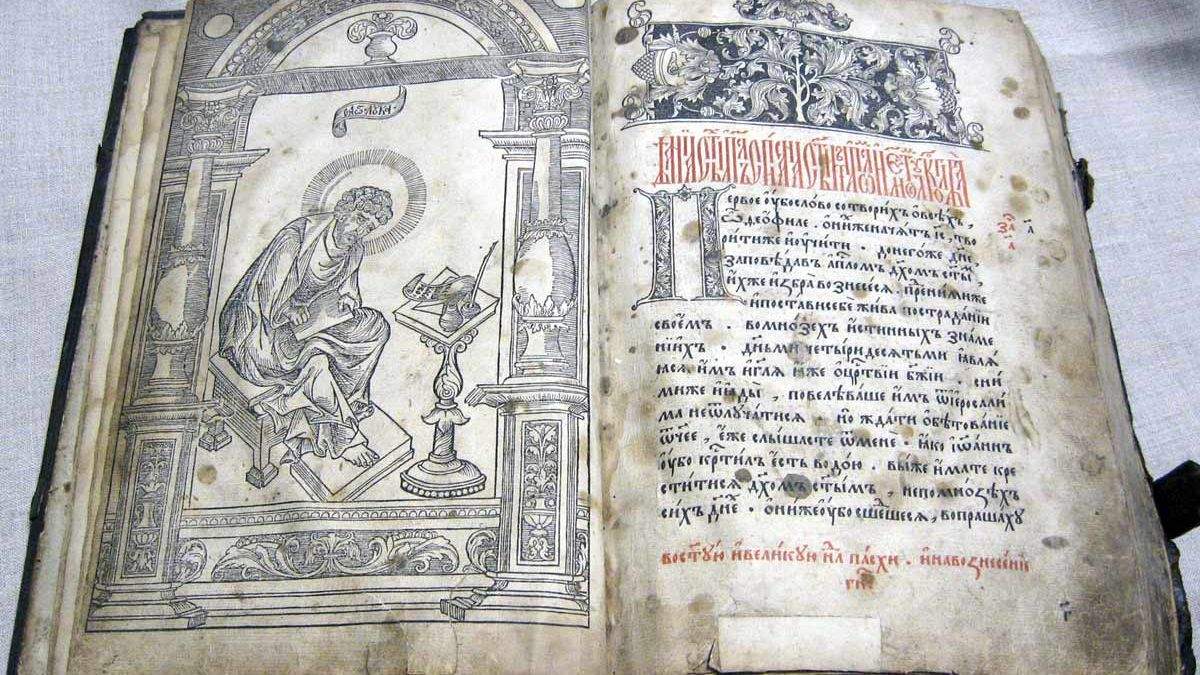 лꙋка
Первое ѹ҆бо слово сотворихъ ѡ всѣхъ,
ѽ ѳеѡ҆филе. ѡ҆ ниже начатъ і҆с, тво
рити же и҆ ѹ҆чити. до него же дне,
заповѣдавъ апⷭ҇ломъ дх҃омъ ст҃ы,
и҆хже и҆збра вознесесѧ. пре ними же
и҆ постави себе жива по страданїи
своемъ. во мнозехъ и҆стинныхъ знаме
нїихъ. дньми четыридесѧтьми ꙗ҆влѧ
ꙗсѧ и҆мъ и҆ гл҃ѧ ꙗ҆же ѡ҆ црⷭ҇твїи бж҃їи. с ни
миже и҆ ꙗ҆ды, повелѣваше и҆мъ ѿ і҆ерⷭ҇али
ма не ѿлꙋчатисѧ но ждати ѡ҆бѣтованїе
ѿчее, е҆же слышасте ѿ мене. ꙗ҆ко і҆ѡаннъ
ѹ҆бо крⷭ҇тилъ е҆сть водою. вы же и҆мате кре
ститисѧ дх҃омъ ст҃ымъ, не по мнозѣхъ
сихъ дне. ѡ҆ни же ѹ҆бо сшⷣешесѧ, вопрашахꙋ
в о ст҃ꙋю и҆ великꙋю нⷣлѧ пасхи. и҆ на вознесенїе
гнⷭ҇е
за
а